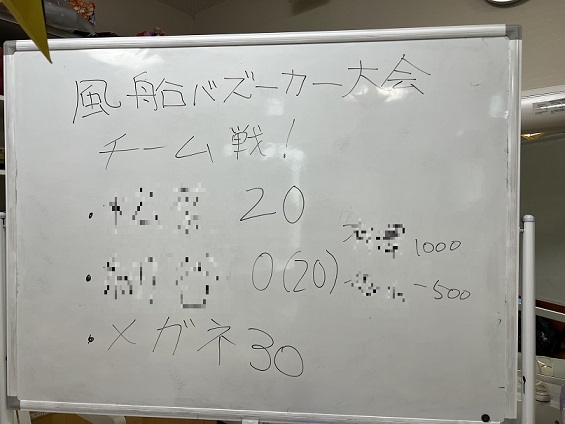 風船バズーカー大会
チーム戦!
・ 20
・ 0(20)
・メガネ 30
1000
-500